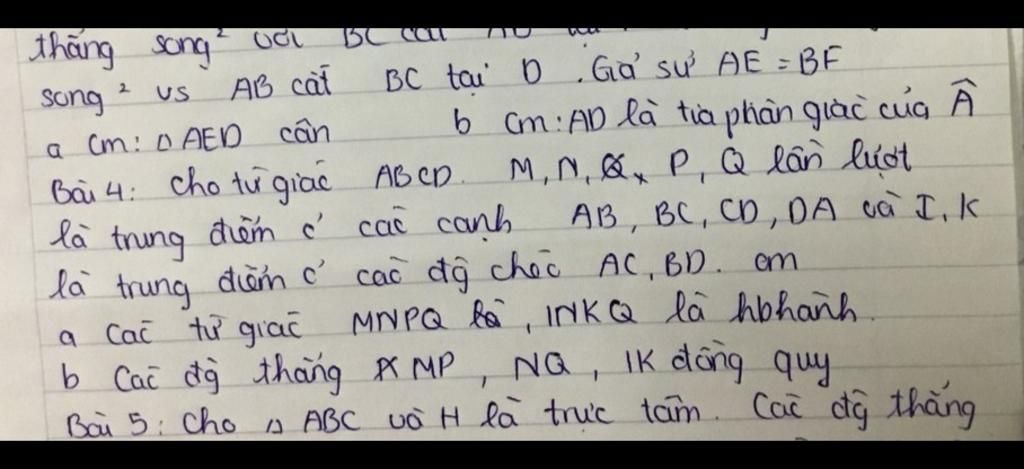 thẳng song² với BC cắt
song² vs AB cắt BC tại D. Giả sử AE = BF
a Cm: △ AED cân b Cm: AD là tia phân giác của Â
Bài 4: Cho tứ giác ABCD. M, N, P, Q lần lượt
là trung điểm c' các cạnh AB, BC, CD, DA và I, K
là trung điểm c' các đg chéo AC, BD. cm
a Các tứ giác MNPQ, INKQ là hbhành.
b Các đg thẳng MP, NQ, IK đồng quy
Bài 5: Cho △ ABC và H là trực tâm. Các đg thẳng